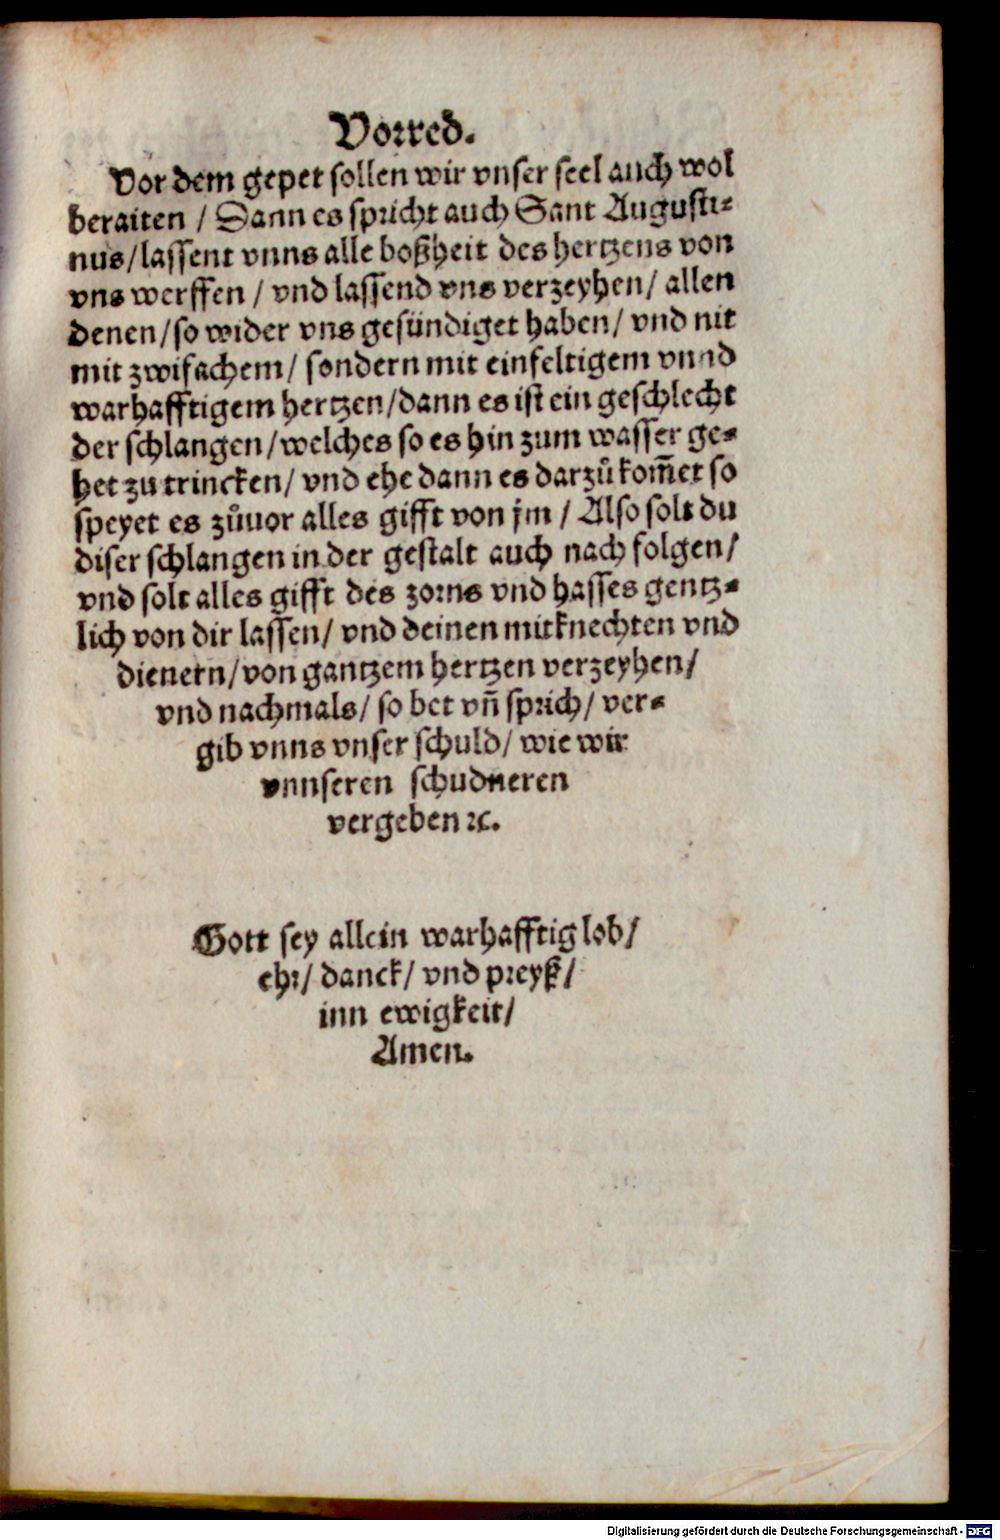 Vorred.
Vor dem gepet sollen wir vnser seel auch wol
beraiten / Dann es spricht auch Sant Augusti-
nus/lassent vnns alle boßheit des hertzens von
vns werffen / vnd lassend vns verzeyhen/ allen
denen/so wider vns gesündiget haben/ vnd nit
mit zwifachem/ sondern mit einfeltigem vnnd
warhafftigem hertzen/dann es ist ein geschlecht
der schlangen/welches so es hin zum wasser ge-
het zu trincken/ vnd ehe dann es darzů kom̃et so
speyet es zůuor alles gifft von jm / Also solt du
diser schlangen in der gestalt auch nach folgen/
vnd solt alles gifft des zorns vnd hasses gentz-
lich von dir lassen/ vnd deinen mitknechten vnd
dienern/von gantzem hertzen verzeyhen/
vnd nachmals/ so bet vñ sprich/ ver-
gib vnns vnser schuld/ wie wir
vnnseren schudneren
vergeben ꝛc.
Gott sey allein warhafftig lob/
ehr/ danck/ vnd preyß/
inn ewigkeit/
Amen.
Digitalisierung gefördert durch die Deutsche Forschungsgemeinschaft - DFG